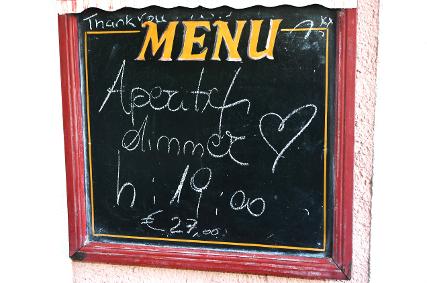 Thank you
MENU
Aperitif
dinner
h:19:00
€ 27,00